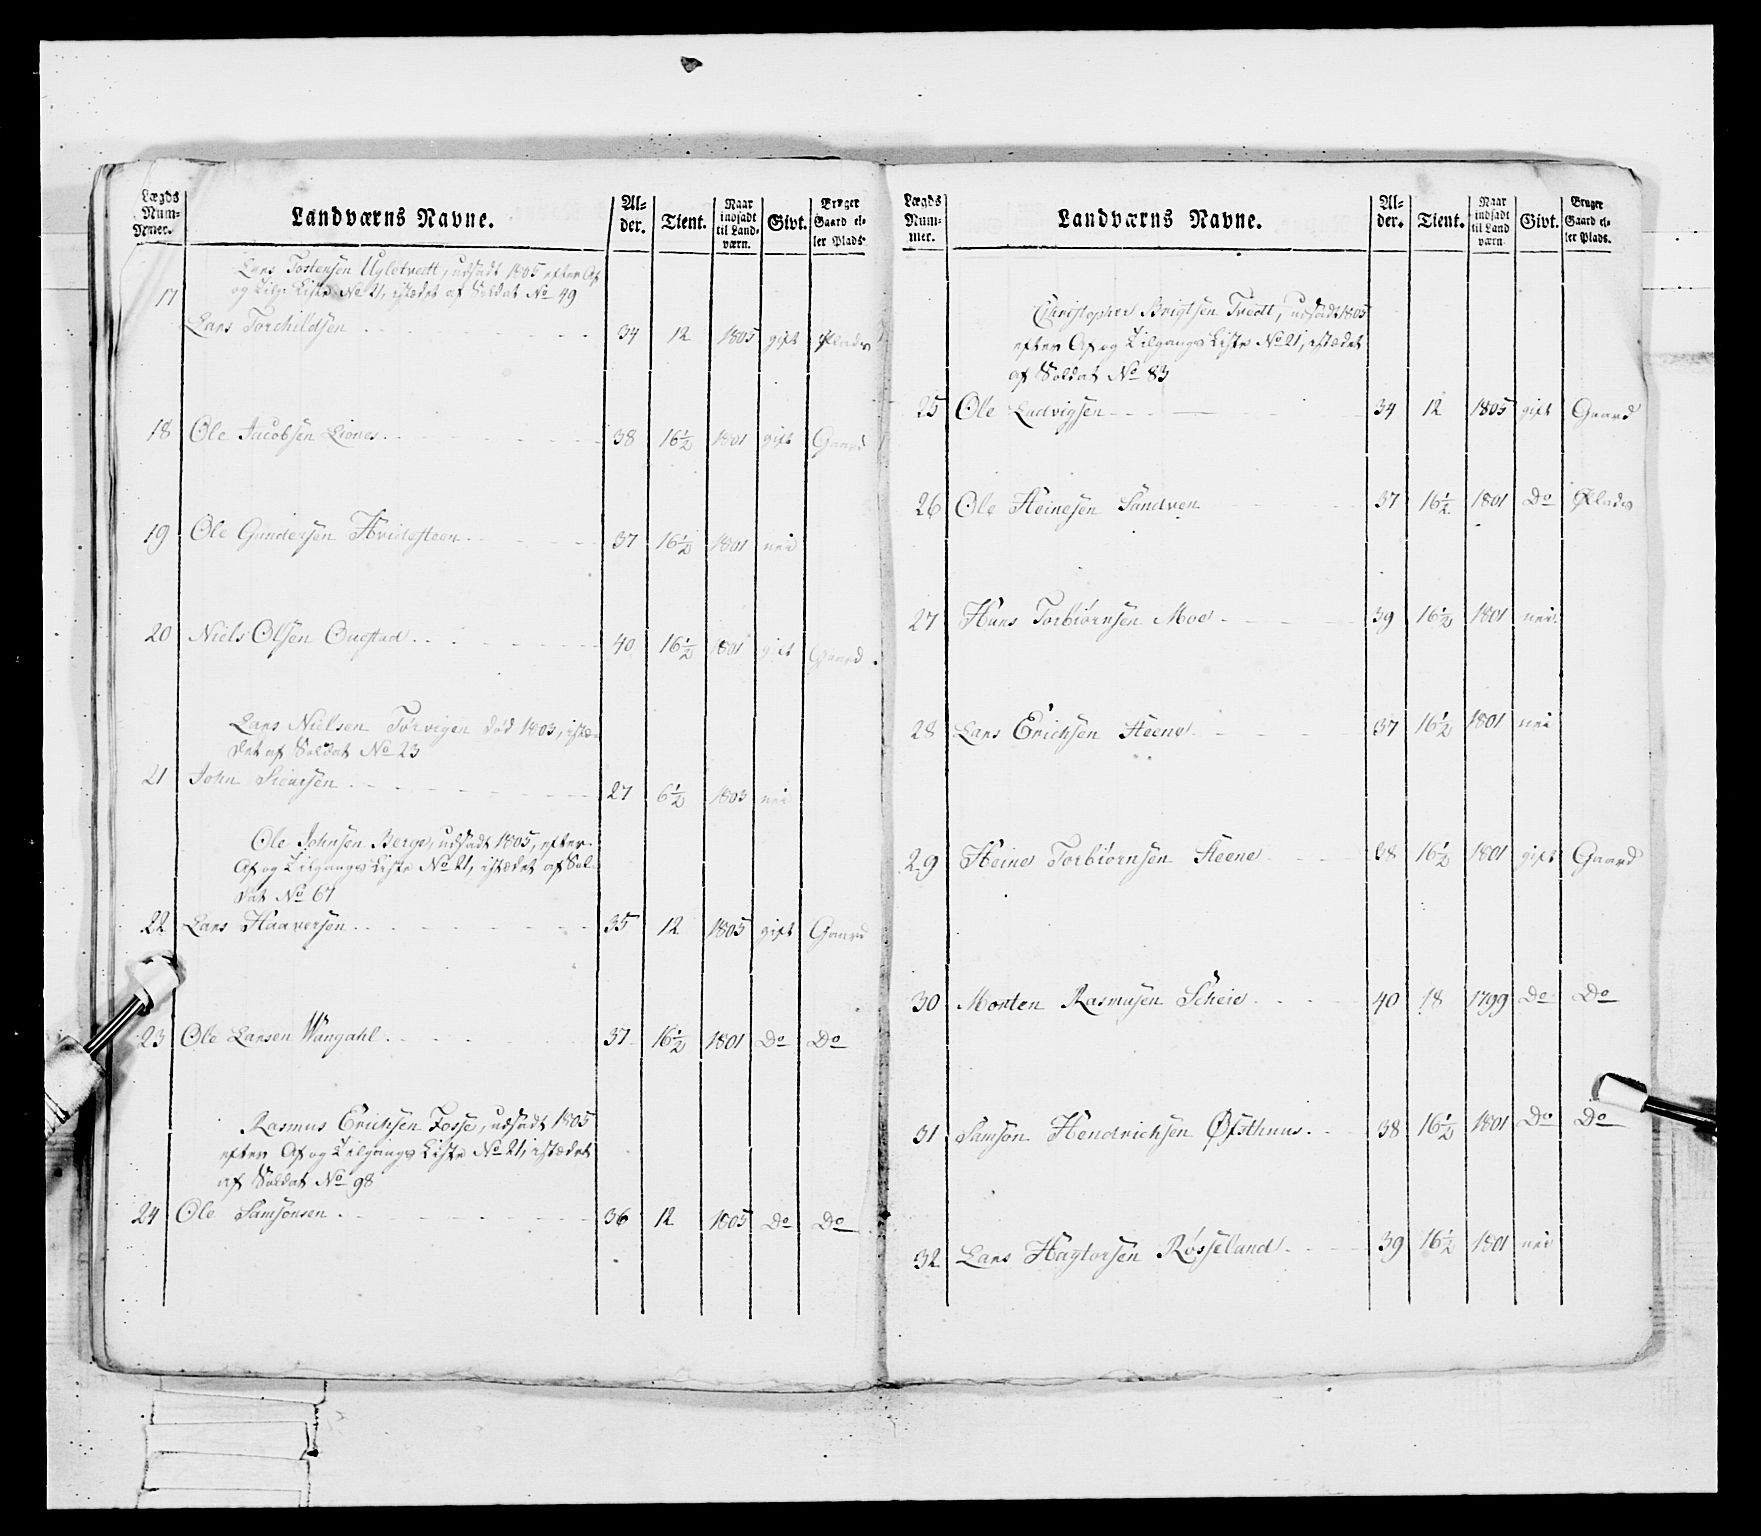 Lægds Num-mer. Landværns Navne. Al-der. Tient. Naar indsadt til Land-værn. Givt. Bruger Gaard el-ler Plads.
Lars Tostensen Uglotvedt, udsadt 1805 efter Af
og Tilg: Liste No 21, istædet af Soldat No 49
17 Lars Torchildsen 34 12 1805 gift Plads
18 Ole Jacobsen Liones 38 16½ 1801 gift Gaard
19 Ole Gundersen Hvidesteen 37 16½ 1801 nei
20 Niels Olsen 40 16½ 1801 gift Gaard
Lars Nielsen Tørvigen død 1803, istæ-
det af Soldat No 23
21 John Siursen 27 6½ 1803 nei
Ole Johnsen Berge, udsadt 1805, efter
Af og Tilgangs Liste No 21, istædet af Sol-
dat No 67
22 Lars Haaversen 35 12 1805 gift Gaard
23 Ole Larsen Wangdahl 37 16½ 1801 Do Do
Rasmus Erichsen Fosse, udsadt 1805
efter Af og Tilgangs Liste No 21, istædet
af Soldat No 98
24 Ole Samsonsen 36 12 1805 Do Do
Lægds Num-mer. Landværns Navne. Al-der. Tient. Naar indsadt til Land værn. Givt. Bruger Gaard el-ler Plads.
Christopher Brigtsen Tvedt, udsadt 1805
efter Af og Tilgangs Liste No 21, istædet
af Soldat No 83
25 Ole Ludvigsen 34 12 1805 gift Gaard
26 Ole Heinesen Sandven 37 16½ 1801 Do Plads
27 Hans Torbiørnsen Moe 39 16½ 1801 nei
28 Lars Erichsen Steene 37 16½ 1801 nei
29 Heine Torbiørnsen Steene 38 16½ 1801 gift Gaard
30 Morten Rasmusen Scheie 40 18 1799 Do Do
31 Samson Hendrichsen Østhuus 38 16½ 1801 Do Do
32 Lars Hagtorsen Røsseland 39 16½ 1801 nei